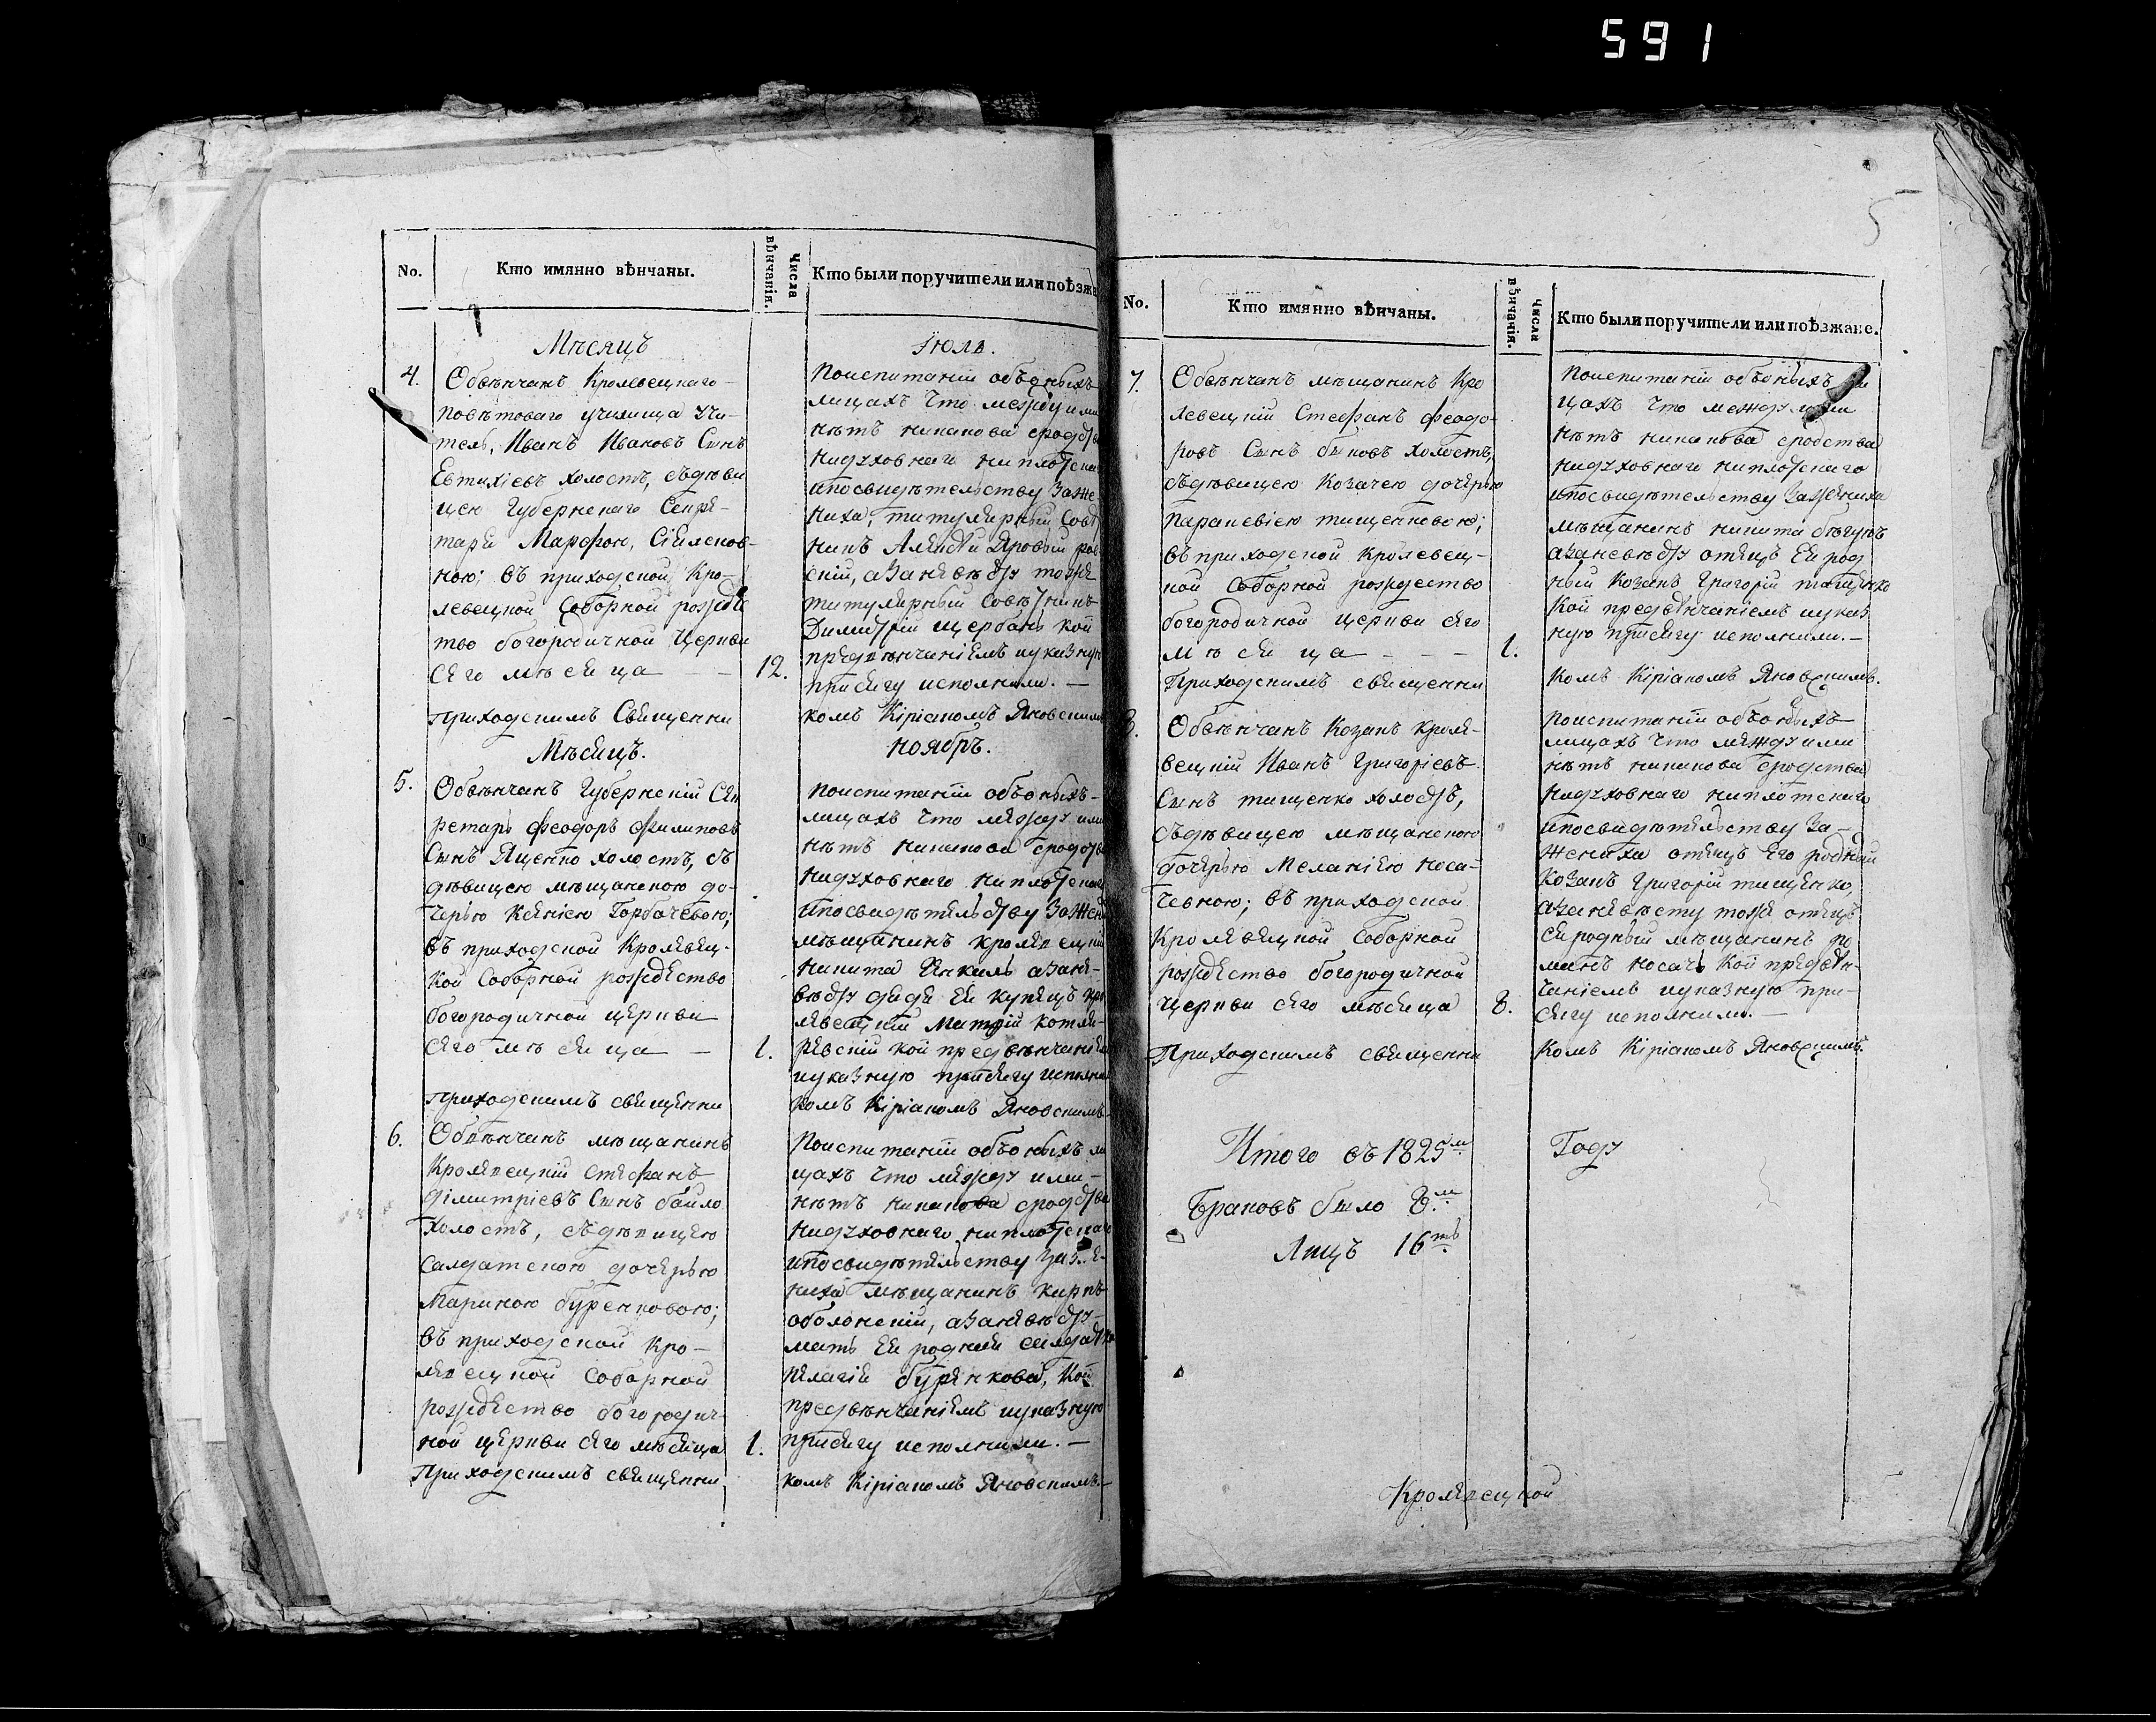 591
5
No.
Кто имянно вѣнчаны.
Числа вѣнчанія.
Кто были поручители или поѣзжа
Мѣсяцъ
Іюль.
4.
Обвѣнчанъ Кролевецкаго
повѣтоваго училища учи-
тель, Иванъ Ивановъ Сынъ
Евтихіевъ холостъ, съдѣви
цею Губернскаго Секре-
таря Марфою,
ною; въ приходской Кро-
левецкой Соборной рождес
тво богородичной Церкви
Сего мѣсяца — —
12.
приходскимъ Священни
Поиспитаніи объоныхъ
лицахъ что между ими
нѣтъ никакова сродства
нидуховнаго ниплотскаго
ипосвидѣтельству Заже
ниха, титулярный Совѣт
никъ Яровый
скій, аЗаневѣсту тоже
титулярный Совѣтникъ
Димитрій Щербакъ кои
предвѣнчаніемъ иуказную
присягу исполнили. —
комъ Кіріакомъ Яновскимъ
Мѣсяцъ.
Ноябрь.
5.
Обвѣнчанъ Губернскій Сек
ретарь Феодоръ Филиповъ
Сынъ Яценко холостъ, съ
дѣвицею мѣщанскою до-
черью Ксеніею Горбачевою;
въ приходской Кролевец-
кой Соборной рождество
богородичной церкви
сего мѣсяца —
1.
приходскимъ священни
Поиспитаніи объоныхъ
лицахъ что между ими
нѣтъ никакова сродства
нидуховнаго ниплотскаго
ипосвидѣтельству Зажени
мѣщанинъ кролевецкій
никита аЗане-
вѣсту дядя Ея купецъ кро
левецкій Матфій Котля-
ревскій кои предвѣнчаніем
иуказную присягу исполни
комъ Кіріакомъ Яновскимъ
6.
Обвѣнчанъ мѣщанинъ
Кролевецкій Стефанъ
Димитріевъ Сынъ
холостъ, съдѣвицею
Салдатскою дочерью
Мариною буренковою;
въ приходской Кро-
левецкой Соборной
рождество богородич-
ной церкви сего мѣсяца
1.
Приходскимъ священни
Поиспитаніи объоныхъ ли
цахъ что между ими
нѣтъ никакова сродства
нидуховнаго ниплотскаго
ипосвидѣтельству Заже-
ниха мѣщанинъ
оболонскій, аЗаневѣсту
мать Ея родная салдатка
пелагія буренкова, кои
предвѣнчаніемъ иуказную
присягу исполнили. —
комъ Кіріакомъ Яновскимъ. —
No.
Кто имянно вѣнчаны.
Числа вѣнчанія.
Кто были поручители или поѣзжане.
7.
Обвѣнчанъ мѣщанинъ Кро
левецкій Стефанъ Феодо-
ровъ Сынъ быковъ холостъ,
съдѣвицею Козачею дочерью
параскевіею тищенковою;
въ приходской кролевец-
кой Соборной рождество
богородичной церкви сего
мѣсяца — — —
1.
Приходскимъ священни
Поиспитаніи объоныхъ ли
цахъ что между ими
нѣтъ никакова сродства
нидуховнаго ниплотскаго
ипосвидѣтельству Зажениха
мѣщанинъ никита бѣгунъ
аЗаневѣсту отецъ Ея род
ный Козакъ Григорій тищенко
кои предвѣнчаніемъ иуказ
ную присягу исполнили. —
комъ Кіріакомъ Яновскимъ.
8.
Обвѣнчанъ Козакъ Кроле-
вецкій Иванъ Григоріевъ
Сынъ тищенко холостъ,
съдѣвицею мѣщанскою
дочерью Меланіею Носа-
чевною; въ приходской
Кролевецкой Соборной
рождество богородичной
Церкви сего мѣсяца
8.
Приходскимъ священни
поиспитаніи объоныхъ
лицахъ что между ими
нѣтъ никакова сродства
нидуховнаго ниплотскаго
ипосвидѣтельству За-
жениха отецъ Его родный
Козакъ Григорій тищенко,
аЗаневѣсту тоже отецъ
ея родный мѣщанинъ ро
манъ носачъ кои предвѣн-
чаніемъ иуказную при-
сягу исполнили. —
комъ Кіріакомъ Яновскимъ.
Итого въ 1825м Году
Браковъ было 8м.
Лицъ 16ть
Кролевецкой